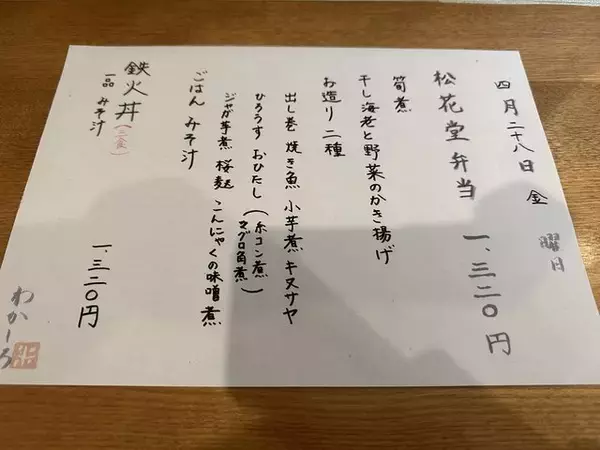 四月二十八日 金曜日
松花堂弁当 一、三二〇円
筍煮
干し海老と野菜のかき揚げ
お造り 二種
出し巻 焼き魚 小芋煮 キヌサヤ
ひろうす おひたし (糸コン煮 マグロ角煮)
ジャガ芋煮 桜麩 こんにゃくの味噌煮
ごはん みそ汁
鉄火丼
一品 みそ汁
一、三二〇円
わかーろ